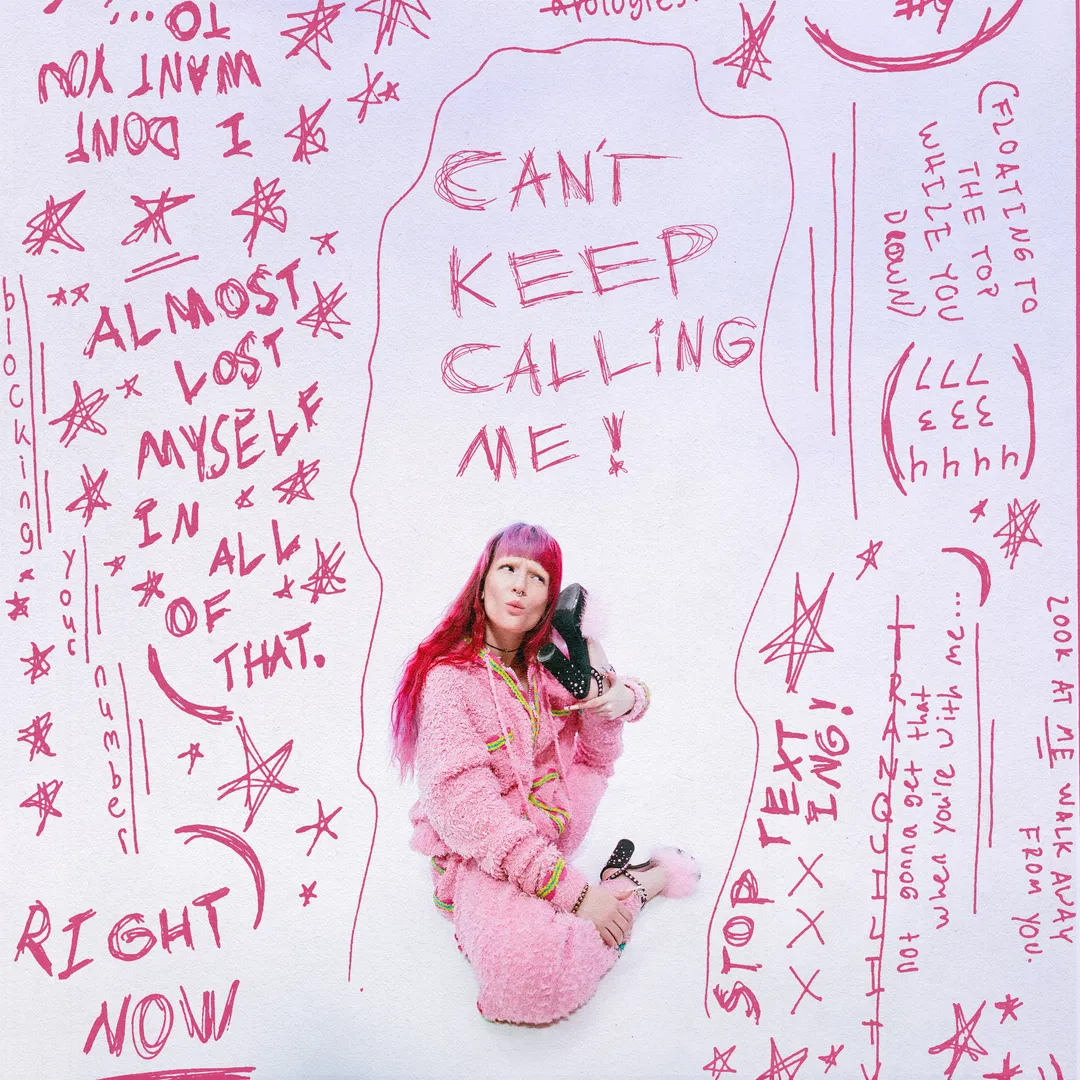 apologies.
I DONT
WANT YOU
TO...
CAN'T
KEEP
CALLING
ME!
ALMOST
LOST
MYSELF
IN
ALL
OF
THAT.
blocking
your
number
RIGHT
NOW
(FLOATING TO
THE TOP
WHILE YOU
DROWN)
STOP TEXT
ING!
XXX
not gonna get that
when you're with me...
LOOK AT ME WALK AWAY
FROM YOU.